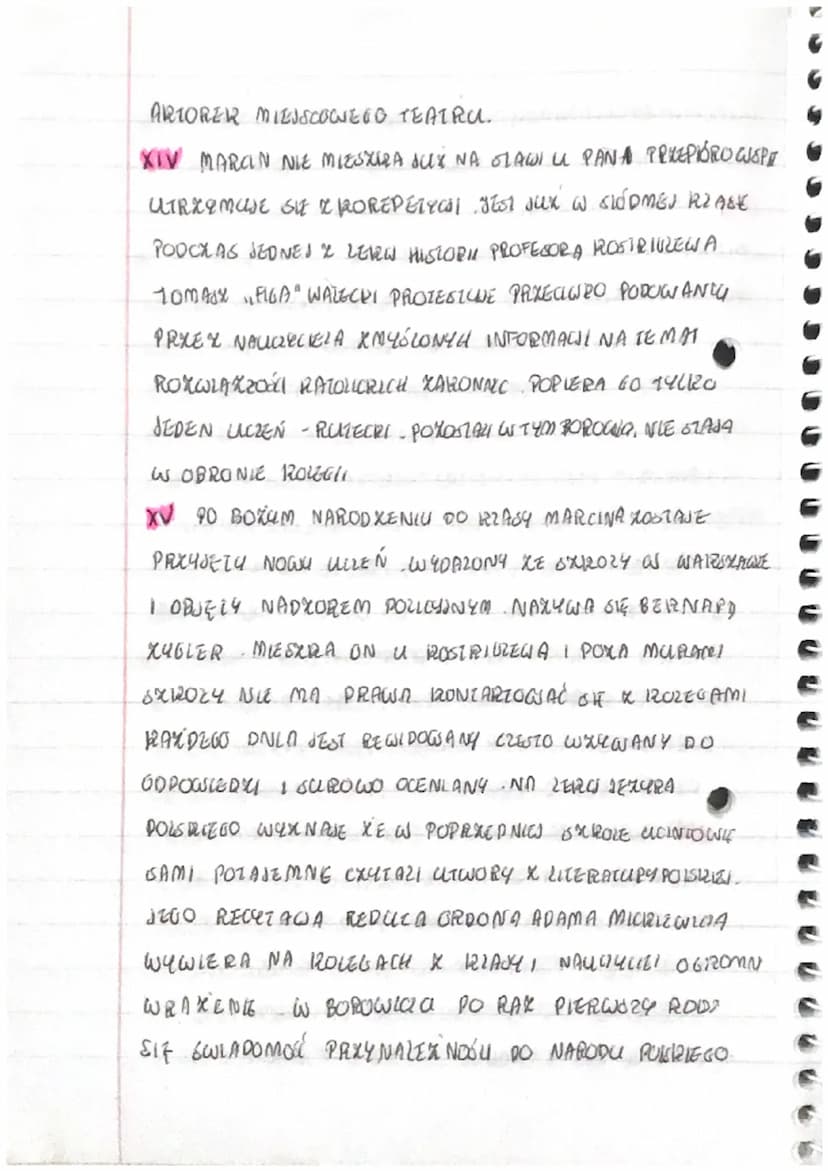 AKTOREK MIEJSCOWEGO TEATRU.
XIV MARCIN NIE MIESZKA JUŻ NA STANCJI U PANA PRZEPIÓRKOWSKI
UTRZYMUJE SIĘ Z KOREPETYCJI. JEST JUŻ W SIÓDMEJ KLASIE
PODCZAS JEDNEJ Z LEKCJI HISTORII PROFESORA KOSTRIULEWA
TOMASZ „FIGA" WALECKI PROTESTUJE PRZECIWKO PODAWANIU
PRZEZ NAUCZYCIELA ZMYŚLONYCH INFORMACJI NA TEMAT
ROZWIĄZŁOŚCI KATOLICKICH ZAKONNIC. POPIERA GO TYLKO
JEDEN UCZEŃ - RUTECKI. POZOSTALI W TYM BOROWICZ, NIE STAJĄ
W OBRONIE KOLEGI.
XV PO BOŻYM NARODZENIU DO KLASY MARCINA ZOSTAJE
PRZYJĘTY NOWY UCZEŃ. WYDALONY ZE SZKOŁY W WARSZAWIE
I OBJĘTY NADZOREM POLICYJNYM. NAZYWA SIĘ BERNARD
ZYGIER. MIESZKA ON U KOSTRIULEWA I POZA MURAMI
SZKOŁY NIE MA PRAWA KONTAKTOWAĆ SIĘ Z KOLEGAMI
KAŻDEGO DNIA JEST REWIDOWANY CZĘSTO WZYWANY DO
ODPOWIEDZI I SUROWO OCENIANY. NA LEKCJI JĘZYKA
POLSKIEGO WYZNAJE ŻE W POPRZEDNIEJ SZKOLE UCZNIOWIE
SAMI POTAJEMNE CZYTALI UTWORY Z LITERATURY POLSKIEJ.
JEGO RECYTACJA REDUTA ORDONA ADAMA MICKIEWICZA
WYWIERA NA KOLEGACH Z KLASY I NAUCZYCIELU OGROMN
WRAŻENIE. W BOROWICZU PO RAZ PIERWSZY RODZI
SIĘ ŚWIADOMOŚĆ PRZYNALEŻNOŚCI DO NARODU POLSKIEGO